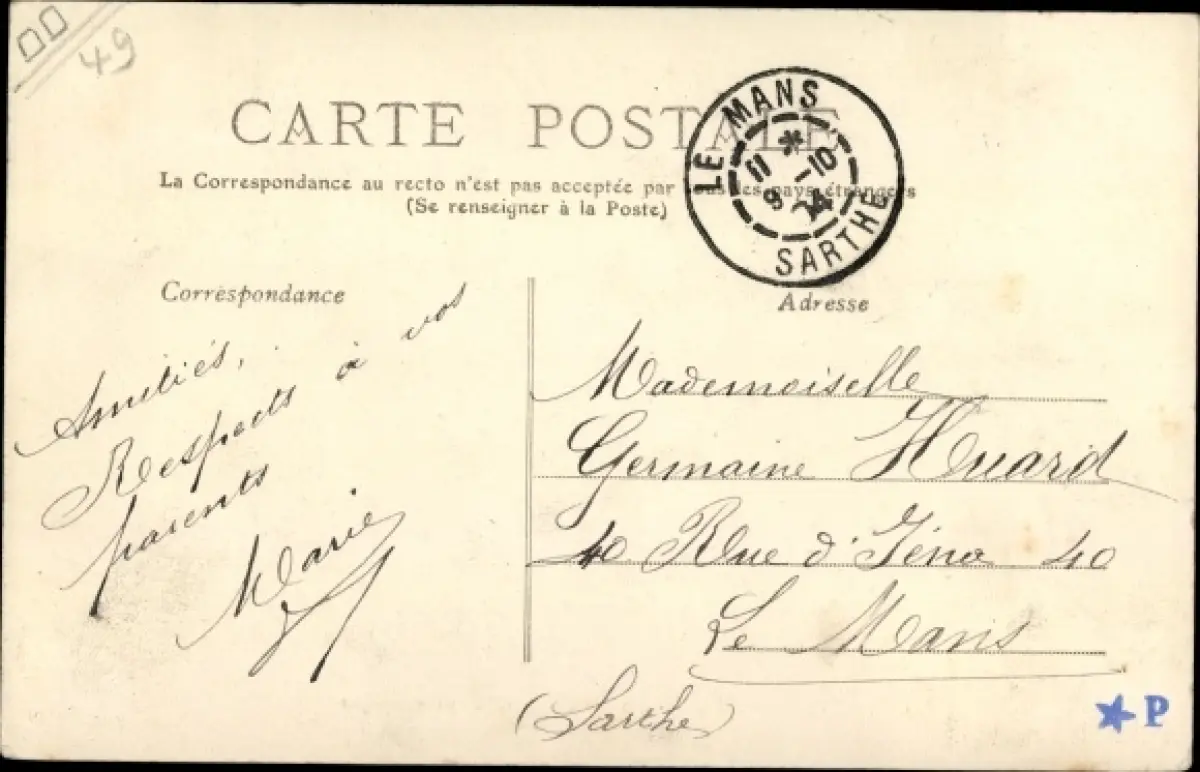 49
CARTE POSTALE
La Correspondance au recto n'est pas acceptée par tous les pays étrangers
(Se renseigner à la Poste)
LE MANS
11 -10
9
SARTHE
Correspondance
Amitiés,
Respects à vos
parents
Marie
Adresse
Mademoiselle
Germaine Huard
40 Rue d'Iéna 40
Le Mans
(Sarthe)
P